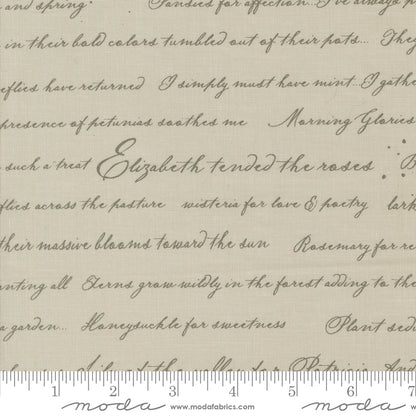 and spring. Pansies for affection... I've always
in their bold colors tumbled out of their pots... They
have returned I simply must have mint. I
presence of petunias soothes me Morning Glories
such a treat Elizabeth tended the roses
across the pasture wisteria for love & poetry
their massive blooms toward the sun Rosemary for
all Ferns grow wildly in the forest adding to the
a garden... Honeysuckle for sweetness Plant
of the valley for Patricia And
1 2 3 4 5 6 7
moda www.modafabrics.com moda